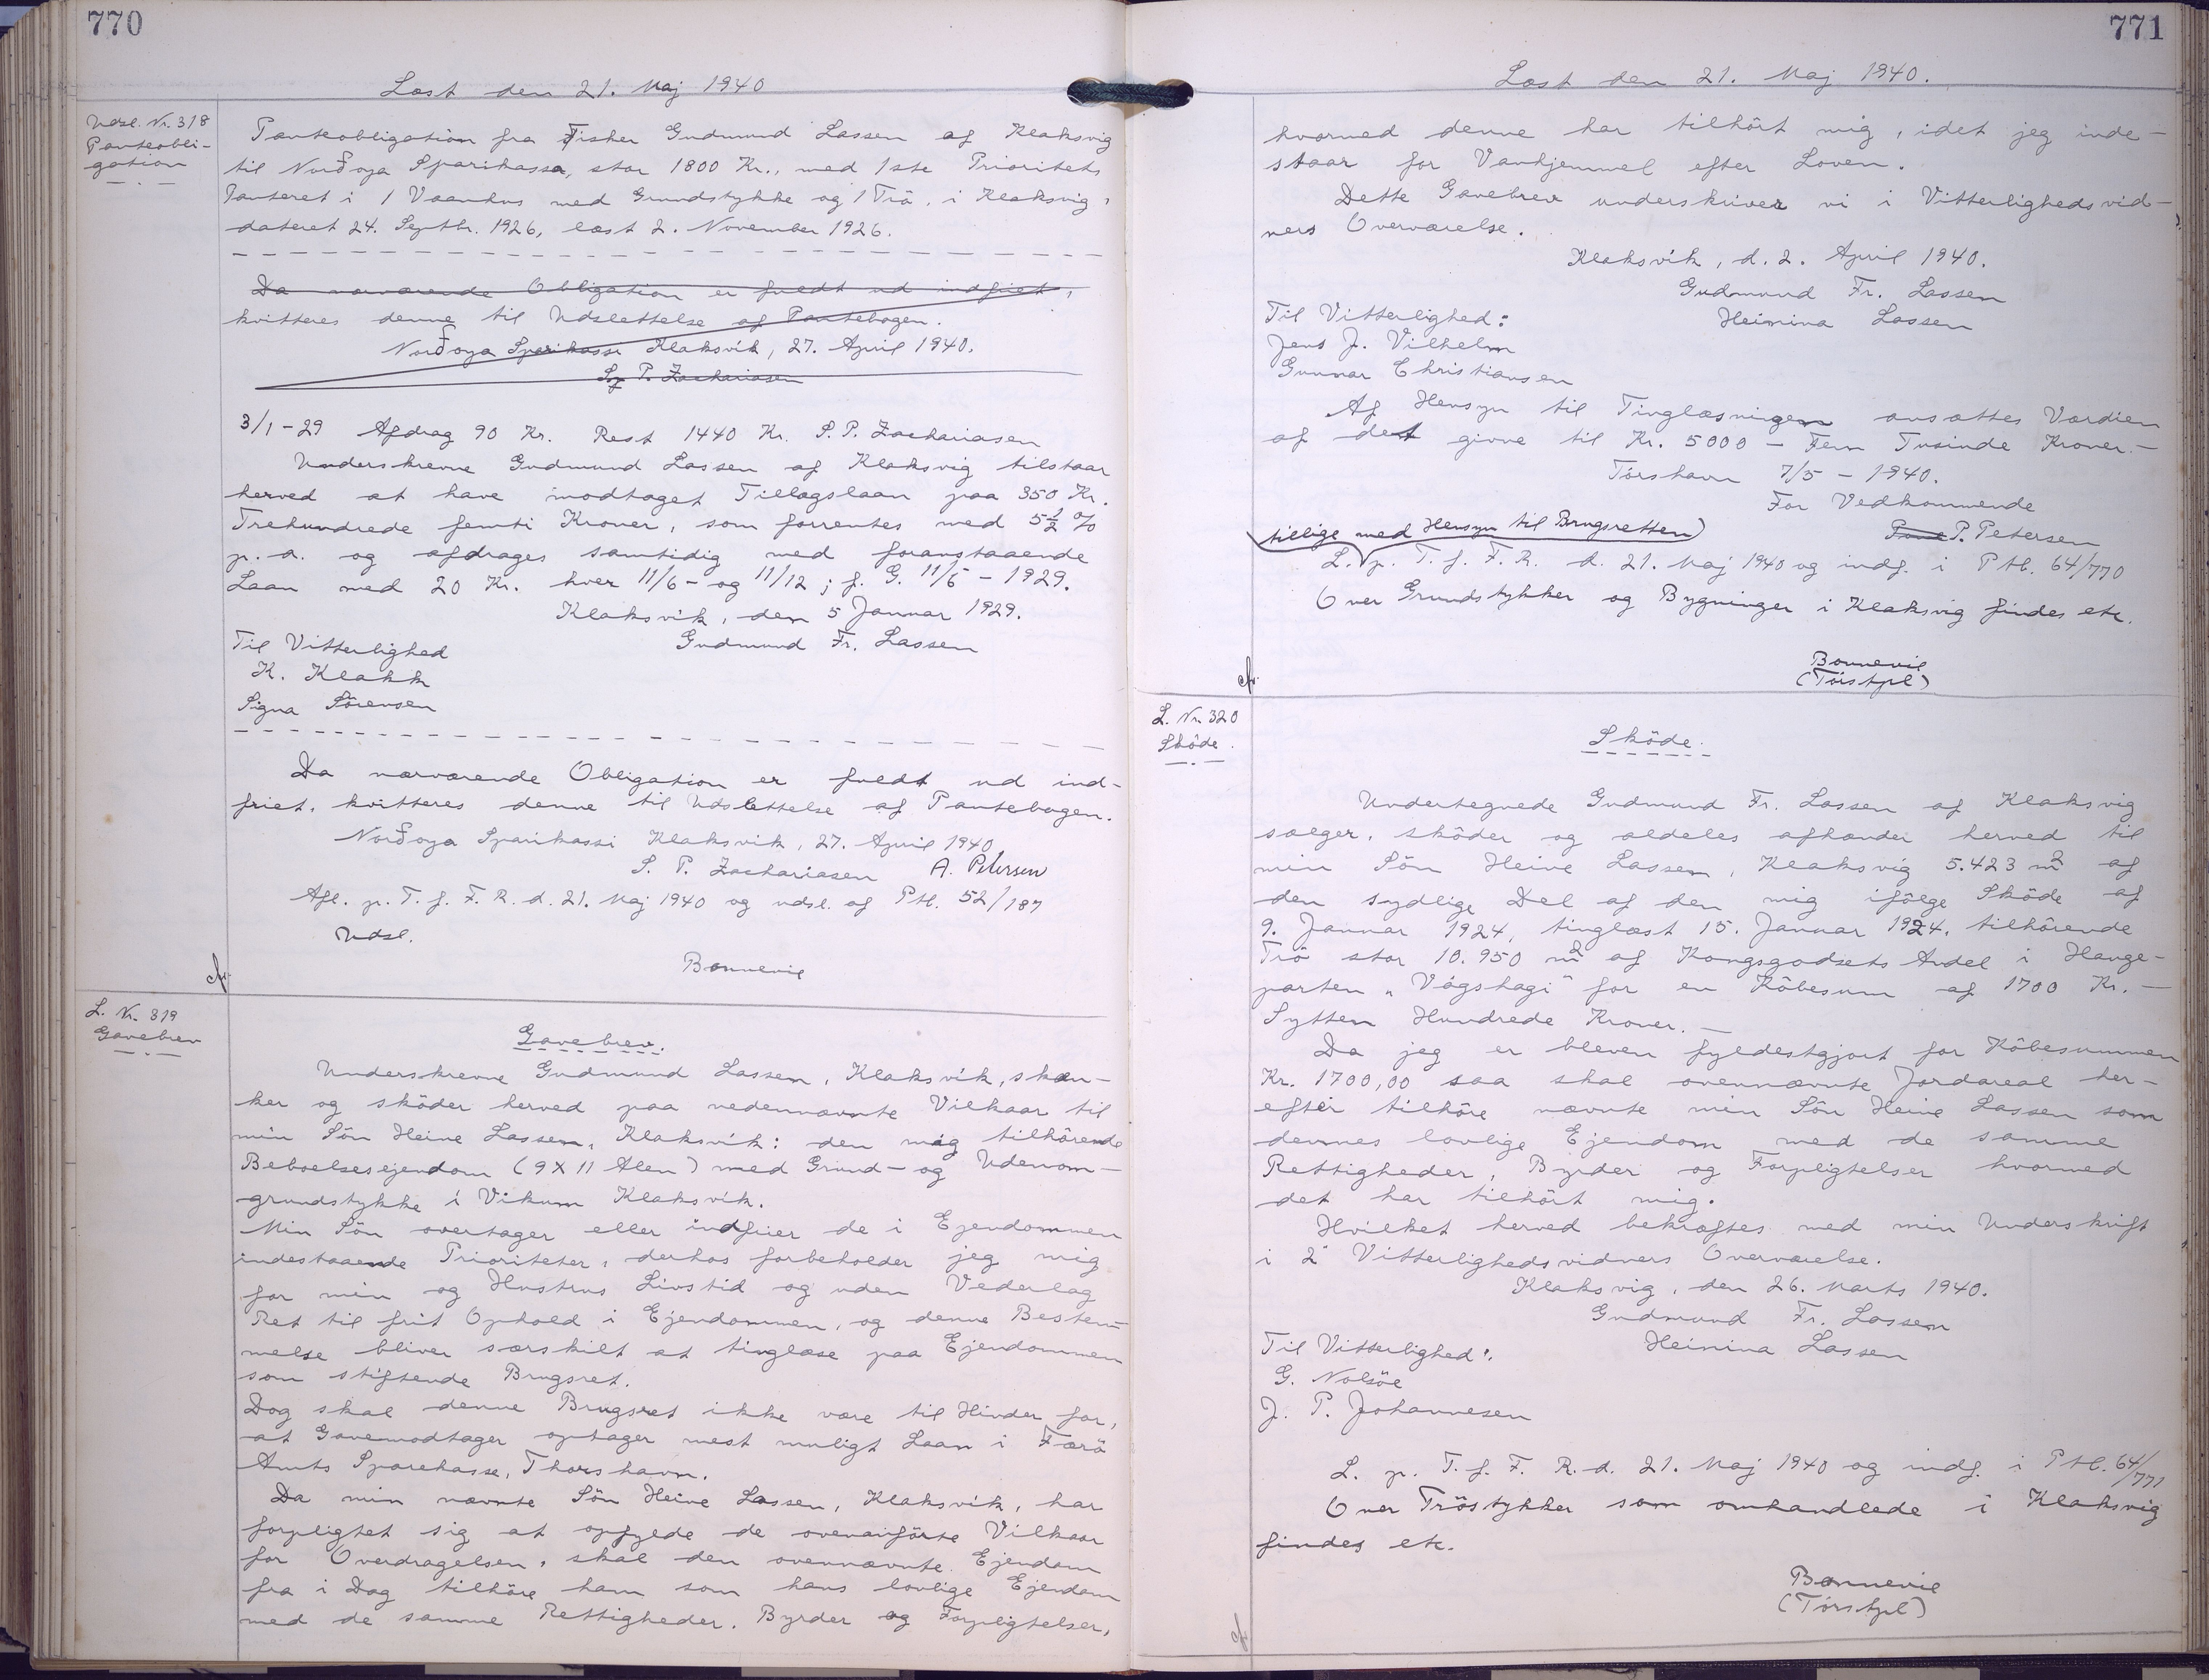 770
Læst den 21. Maj 1940
Udsl. Nr. 318
Panteobli-
gation
Panteobligation fra Fisker Gudmund Lassen af Klaksvig
til Norðoya Sparikassa, stor 1800 Kr., med 1ste Prioritets
Panteret i 1 Vaanhus med Grundstykke og 1 Trö, i Klaksvig,
dateret 24. Septbr. 1926, læst 2. November 1926.
Da nærværende Obligation er fuldt ud indfriet,
kvitteres denne til Udslettelse af Pantebogen.
Norðoya Sparikassi Klaksvík, 27. April 1940.
S. P. Zachariasen
3/1-29 Afdrag 90 Kr. Rest 1440 Kr. S. P. Zachariasen
Underskrevne Gudmund Lassen af Klaksvig tilstaar
herved at have modtaget Tillægslaan paa 350 Kr.
Trehundrede femti Kroner, som forrentes med 5½ %
p. a. og afdrages samtidig med foranstaaende
Laan med 20 Kr. hver 11/6- og 11/12; f. G. 11/6 - 1929.
Klaksvík, den 5 Januar 1929.
Til Vitterlighed
Gudmund Fr. Lassen
K. Klakk
Signa Sörensen
Da nærværende Obligation er fuldt ud ind-
friet, kvitteres denne til Udslettelse af Pantebogen.
Norðoya Sparikassi Klaksvík, 27. April 1940
S. P. Zachariasen A. Petersen
Afl. p. T. f. F. R. d. 21. Maj 1940 og udsl. af Ptb. 52/187
Udsl.
Bonnevie
L. Nr. 319
Gavebrev
Gavebrev.
Underskrevne Gudmund Lassen, Klaksvík, skæn-
ker og sköder herved paa nedennævnte Vilkaar til
min Sön Heine Lassen, Klaksvík: den mig tilhörende
Beboelsesejendom (9 X 11 Alen) med Grund- og Udenom-
grundstykke í Vikum Klaksvík.
Min Sön overtager eller indfrier de i Ejendommen
indestaaende Prioriteter, derhos forbeholder jeg mig
for min og Hustrus Livstid og uden Vederlag
Ret til frit Ophold i Ejendommen, og denne Bestem-
melse bliver særskilt at tinglæse paa Ejendommen
som stiftende Brugsret.
Dog skal denne Brugsret ikke være til Hinder for,
at Gavemodtager optager mest muligt Laan i Færö
Amts Sparekasse, Thorshavn.
Da min nævnte Sön Heine Lassen, Klaksvík, har
forpligtet sig at opfylde de ovenanförte Vilkaar
for Overdragelsen, skal den ovennævnte Ejendom
fra i Dag tilhöre ham som hans lovlige Ejendom
med de samme Rettigheder, Byrder og Forpligtelser,
771
Læst den 21. Maj 1940.
hvormed denne har tilhört mig, idet jeg inde-
staar for Vanhjemmel efter Loven.
Dette Gavebrev underskriver vi i Vitterlighedsvid-
ners Overværelse.
Klaksvík, d. 2. April 1940.
Gudmund Fr. Lassen
Til Vitterlighed:
Heinina Lassen
Jens J. Vilhelm
Gunnar Christiansen
Af Hensyn til Tinglæsningen ansættes Værdien
af det givne til Kr. 5000 - Fem Tusinde Kroner.-
Tórshavn 7/5 - 1940.
For Vedkommende
P. Petersen
tillige med Hensyn til Brugsretten)
L. p. T. f. F. R. d. 21. Maj 1940 og indf. i Ptb. 64/770
Over Grundstykker og Bygninger i Klaksvig findes etc.
Bonnevie
(Tórstpl)
L. Nr. 320
Sköde.
Sköde.
Undertegnede Gudmund Fr. Lassen af Klaksvig
sælger, sköder og aldeles afhænder herved til
min Sön Heine Lassen, Klaksvig 5.423 m² af
den sydlige Del af den mig ifölge Sköde af
9. Januar 1924, tinglæst 15. Januar 1924, tilhörende
Trö stor 10.950 m² af Kongsgodsets Andel i Hauge-
parten "Vágshagi" for en Köbesum af 1700 Kr. -
Sytten Hundrede Kroner. -
Da jeg er bleven fyldestgjort for Köbesummen
Kr. 1700,00 saa skal ovennævnte Jordareal her-
efter tilhöre nævnte min Sön Heine Lassen som
dennes lovlige Ejendom med de samme
Rettigheder, Byrder og Forpligtelser hvormed
det har tilhört mig.
Hvilket herved bekræftes med min Underskrift
i 2 Vitterlighedsvidners Overværelse.
Klaksvig, den 26. Marts 1940.
Gudmund Fr. Lassen
Til Vitterlighed:
Heinina Lassen
G. Nolsöe
J. P. Johannesen
L. p. T. f. F. R. d. 21. Maj 1940 og indf. i Ptb. 64/771
Over Tröstykker som omhandlede i Klaksvig
findes etc.
Bonnevie
(Tórstpl)